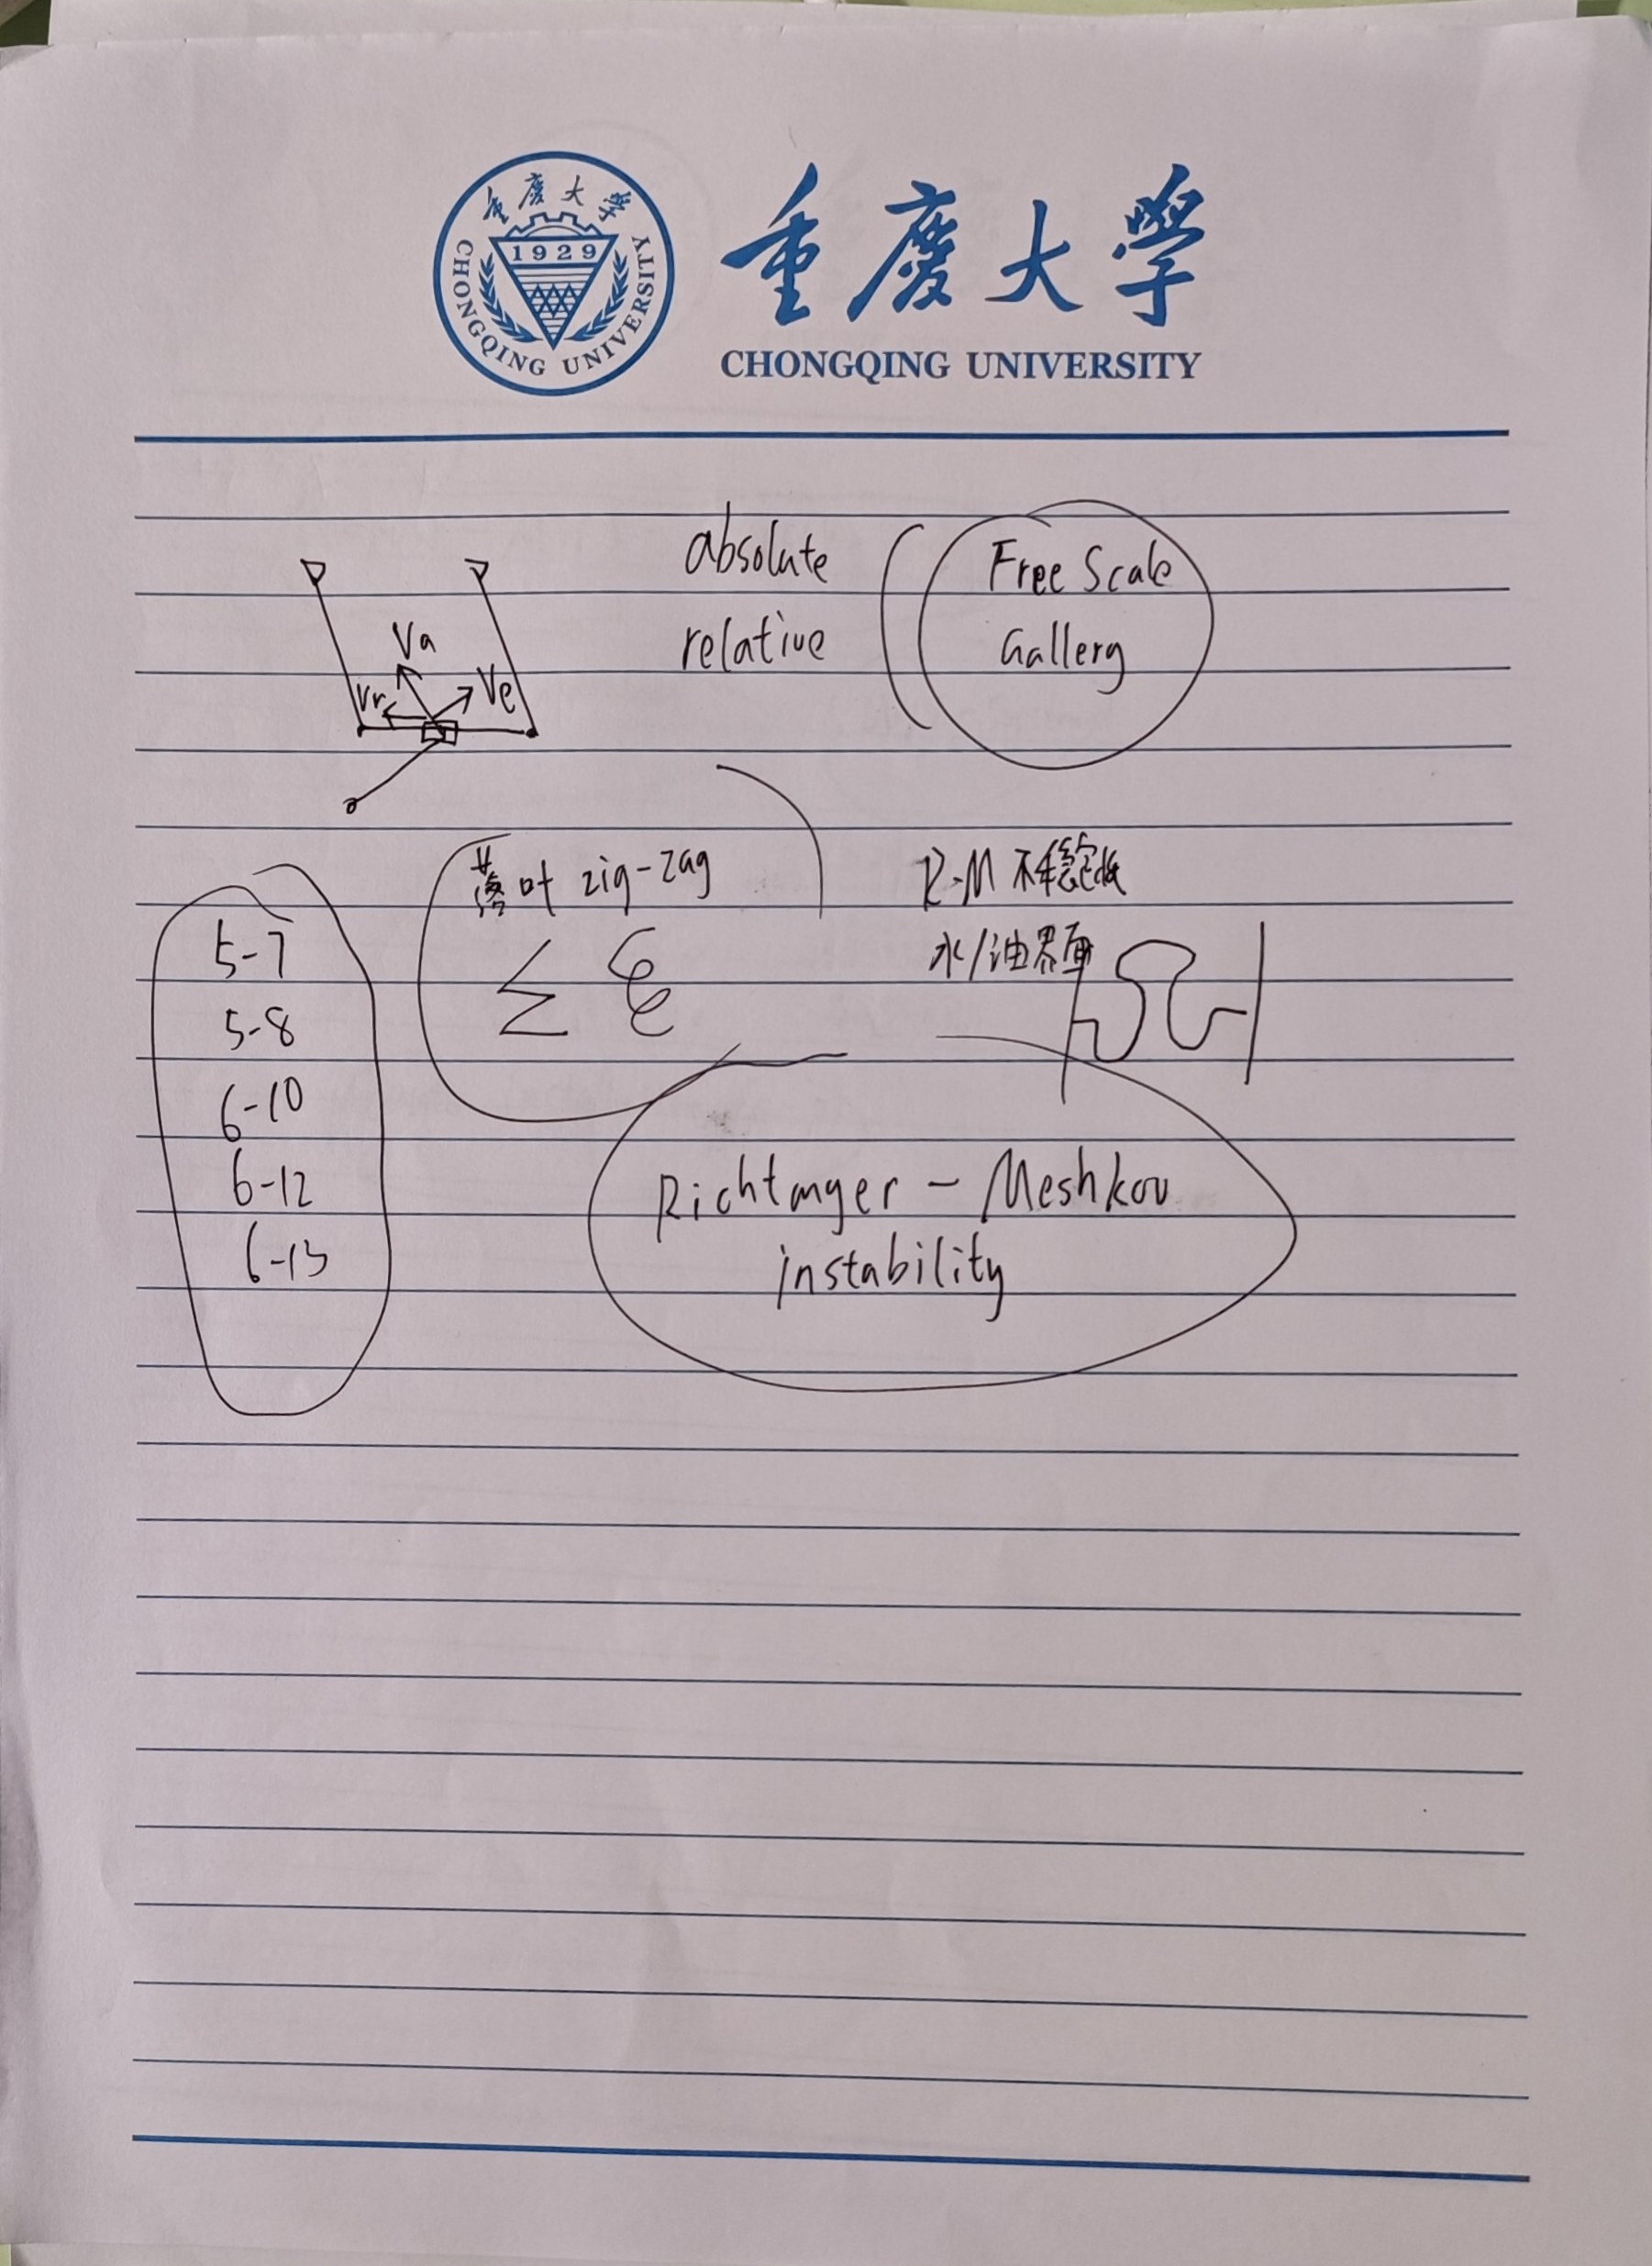 重慶大學
1929
CHONGQING UNIVERSITY
重慶大學
CHONGQING UNIVERSITY
absolute
relative
Free Scale
Gallery
Va
Vr
Ve
落叶 zig-zag
R-M 不稳定性
水/油界面
5-7
5-8
6-10
6-12
6-13
Richtmyer - Meshkov
instability